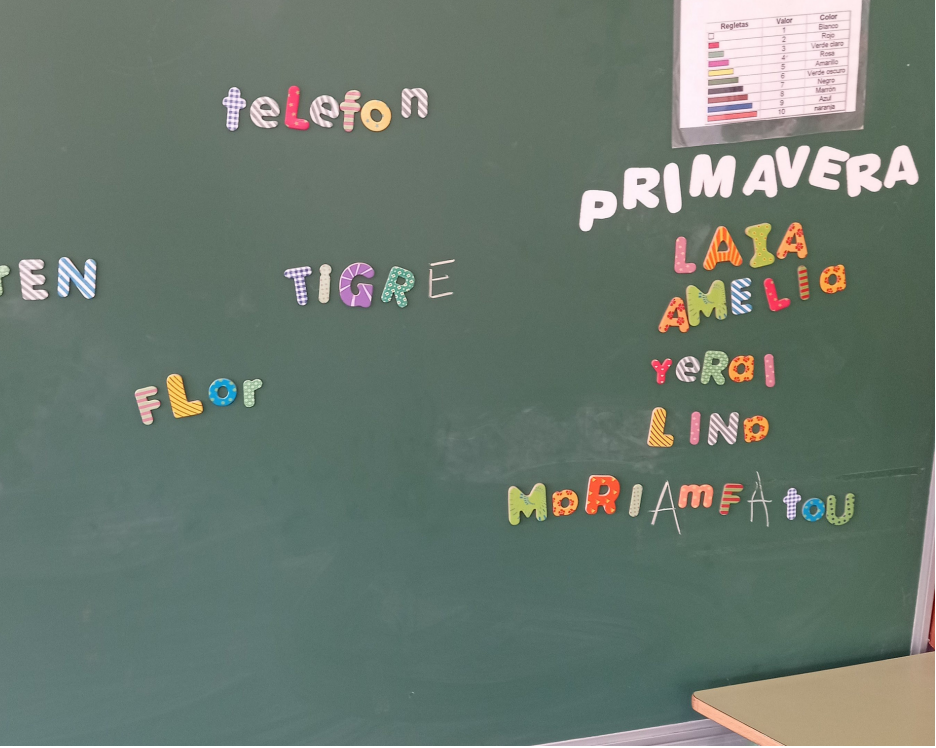 Regletas Valor Color
1 Blanco
2 Rojo
3 Verde claro
4 Rosa
5 Amarillo
6 Verde oscuro
7 Negro
8 Marrón
9 Azul
10 naranja
teLefon
PRIMAVERA
LAIA
TEN
TIGRE
AMElia
YeRaI
FLor
LINo
MaRIAmFAtoU